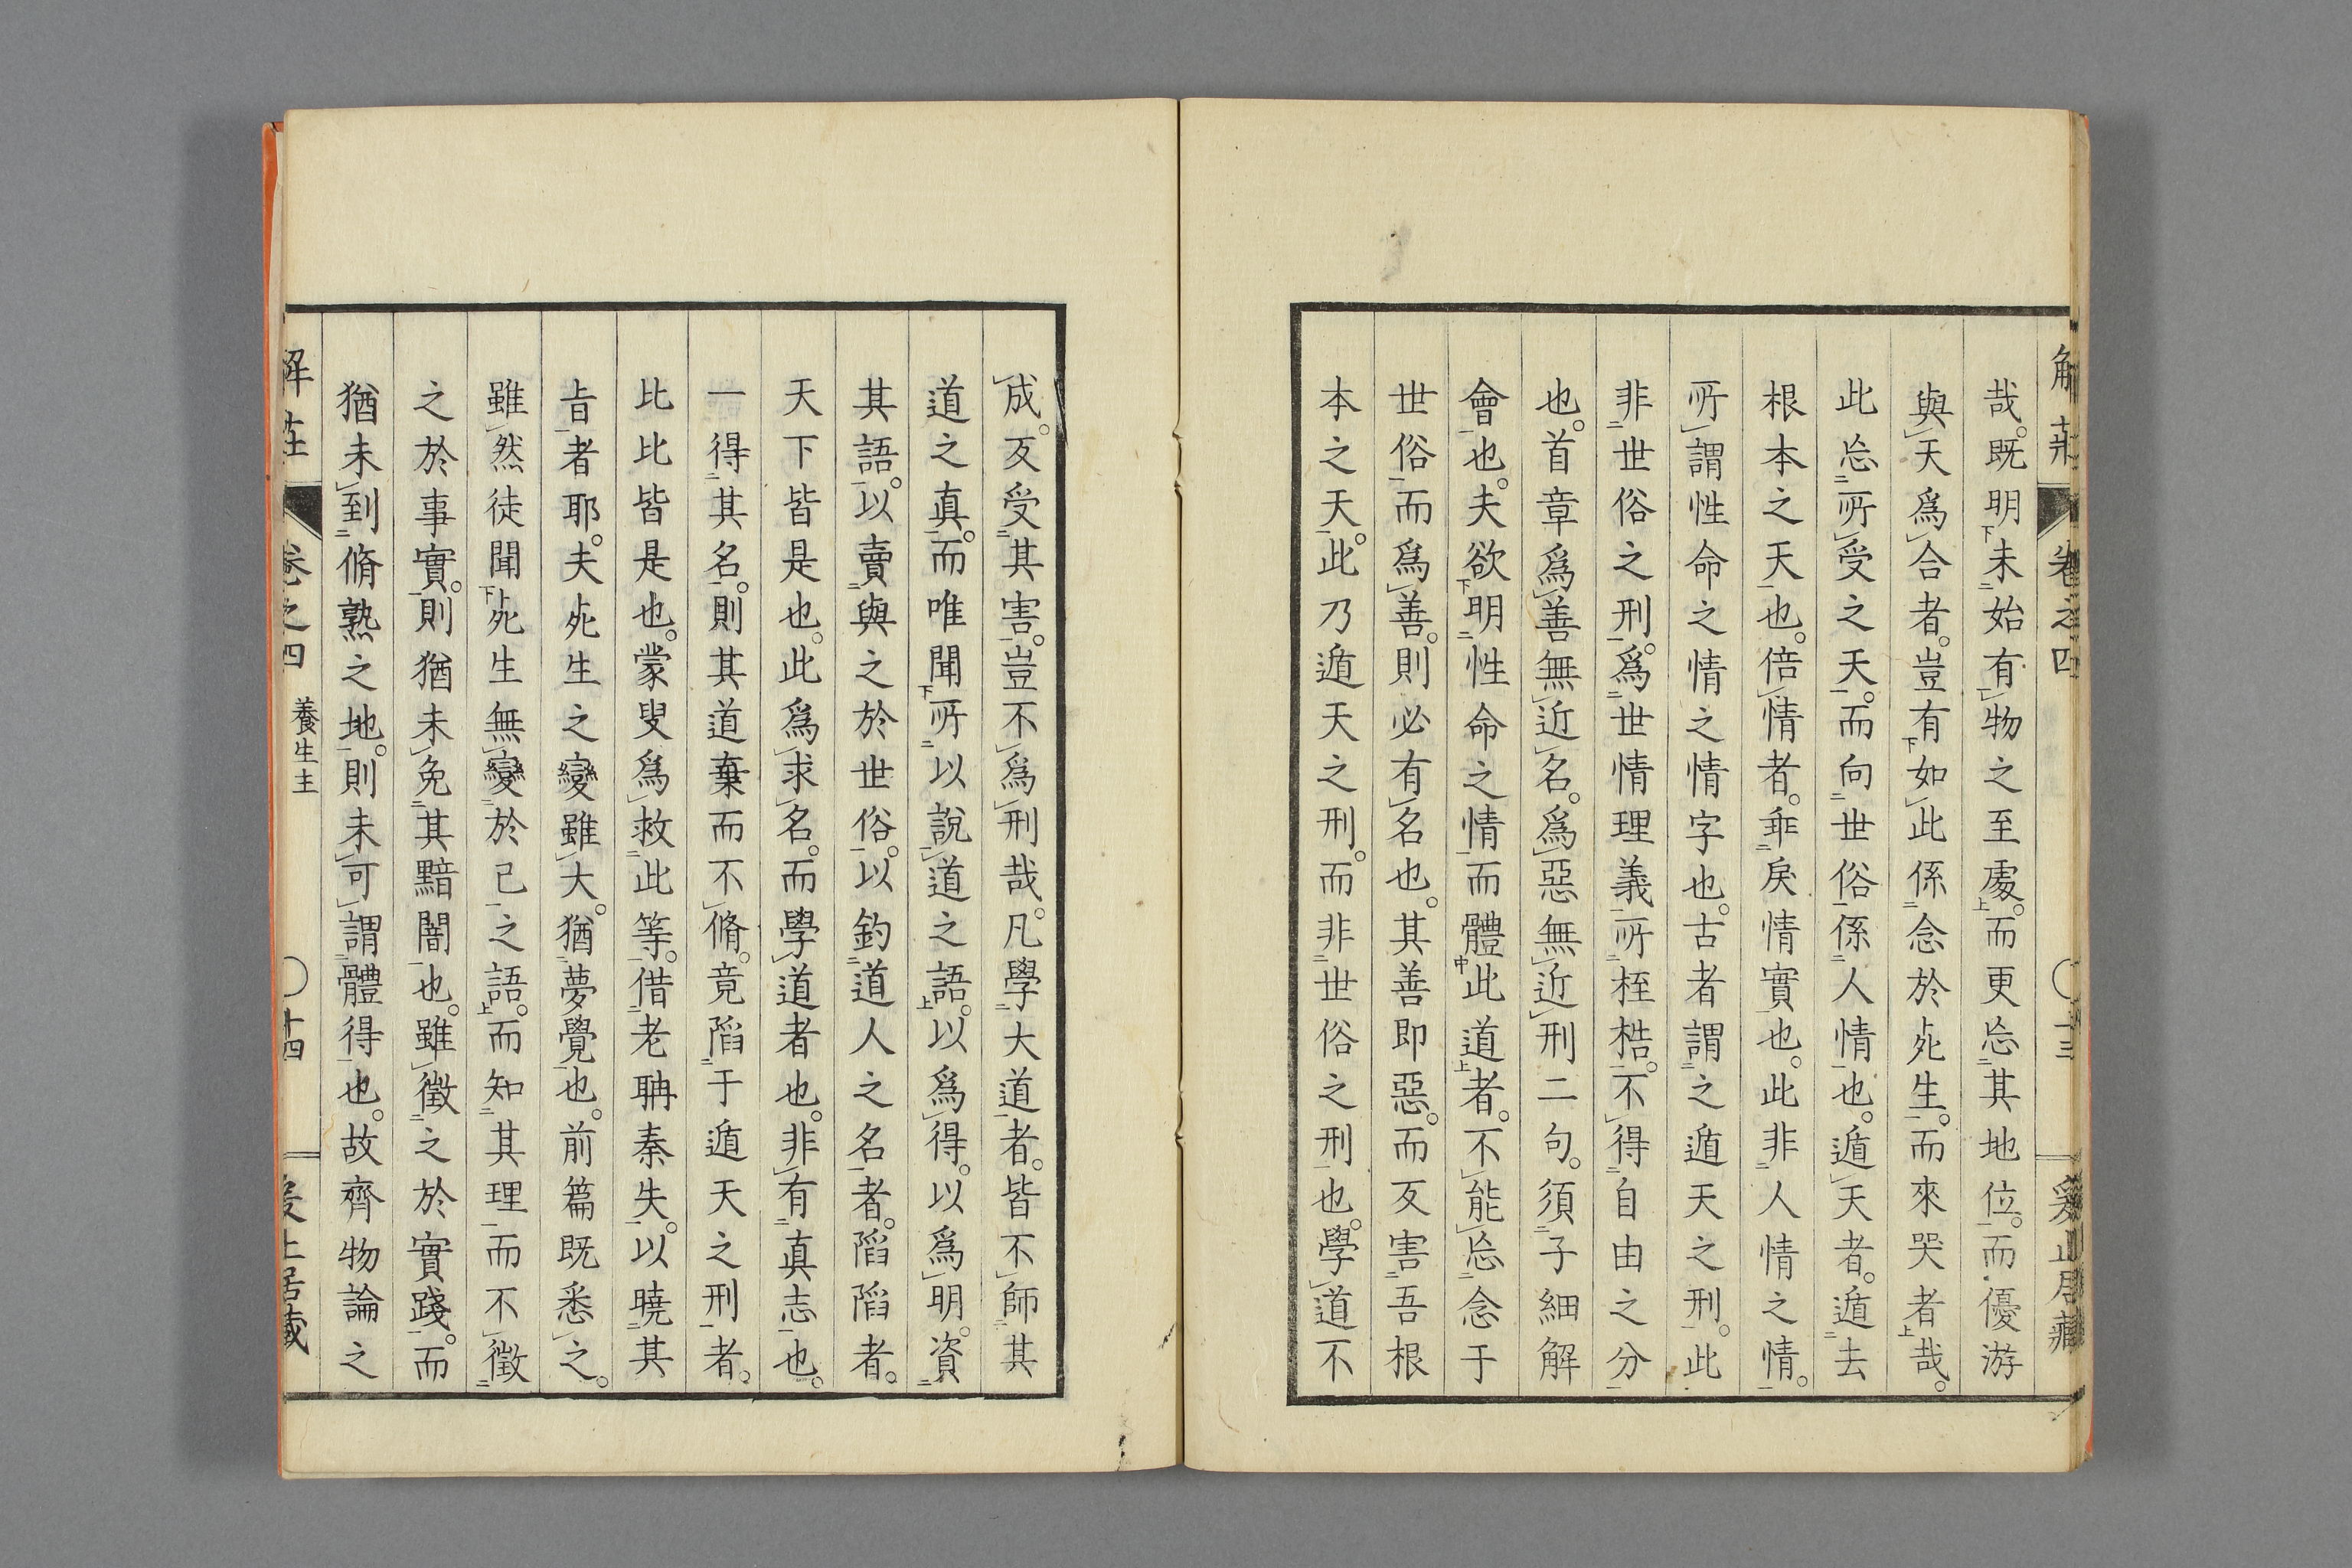 解莊 卷之四 〇十三 爰止居藏
哉。既明未始有物之至處。而更忘其地位。而優游
與天爲合者。豈有如此係念於死生。而來哭者哉。
此忘所受之天。而向世俗係人情也。遁天者。遁去
根本之天也。倍情者。乖戾情實也。此非人情之情。
所謂性命之情之情字也。古者謂之遁天之刑。此
非世俗之刑。爲世情理義所桎梏。不得自由之分
也。首章爲善無近名。爲惡無近刑二句。須子細解
會也。夫欲明性命之情而體此道者。不能忘念于
世俗而爲善。則必有名也。其善即惡。而反害吾根
本之天。此乃遁天之刑。而非世俗之刑也。學道不
成。反受其害。豈不爲刑哉。凡學大道者。皆不師其
道之真。而唯聞所以說道之語。以爲得。以爲明。資
其語。以賣與之於世俗。以釣道人之名者。滔滔者。
天下皆是也。此爲求名。而學道者也。非有真志也。
一得其名。則其道棄而不脩。竟陷于遁天之刑者。
比比皆是也。蒙叟爲救此等。借老聃秦失。以曉其
旨者耶。夫死生之變雖大。猶夢覺也。前篇既悉之。
雖然徒聞死生無變於己之語。而知其理而不徵
之於事實。則猶未免其黯闇也。雖徵之於實踐。而
猶未到脩熟之地。則未可謂體得也。故齊物論之
解莊 卷之四 養生主 〇十四 爰止居藏